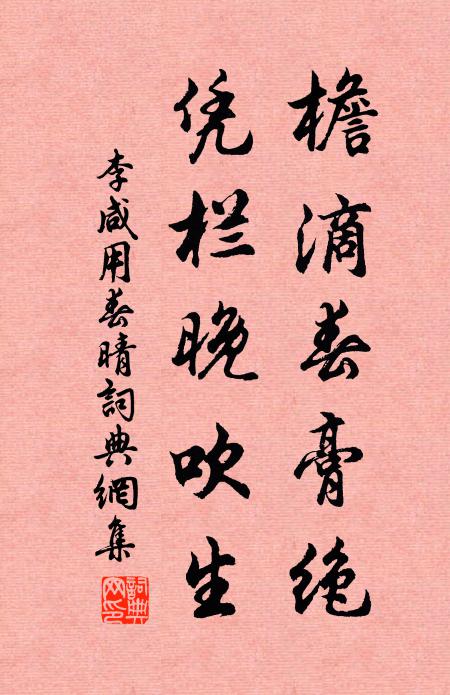 檐滴春膏绝
凭栏晚吹生
李咸用春晴詞典網集
詞典网印